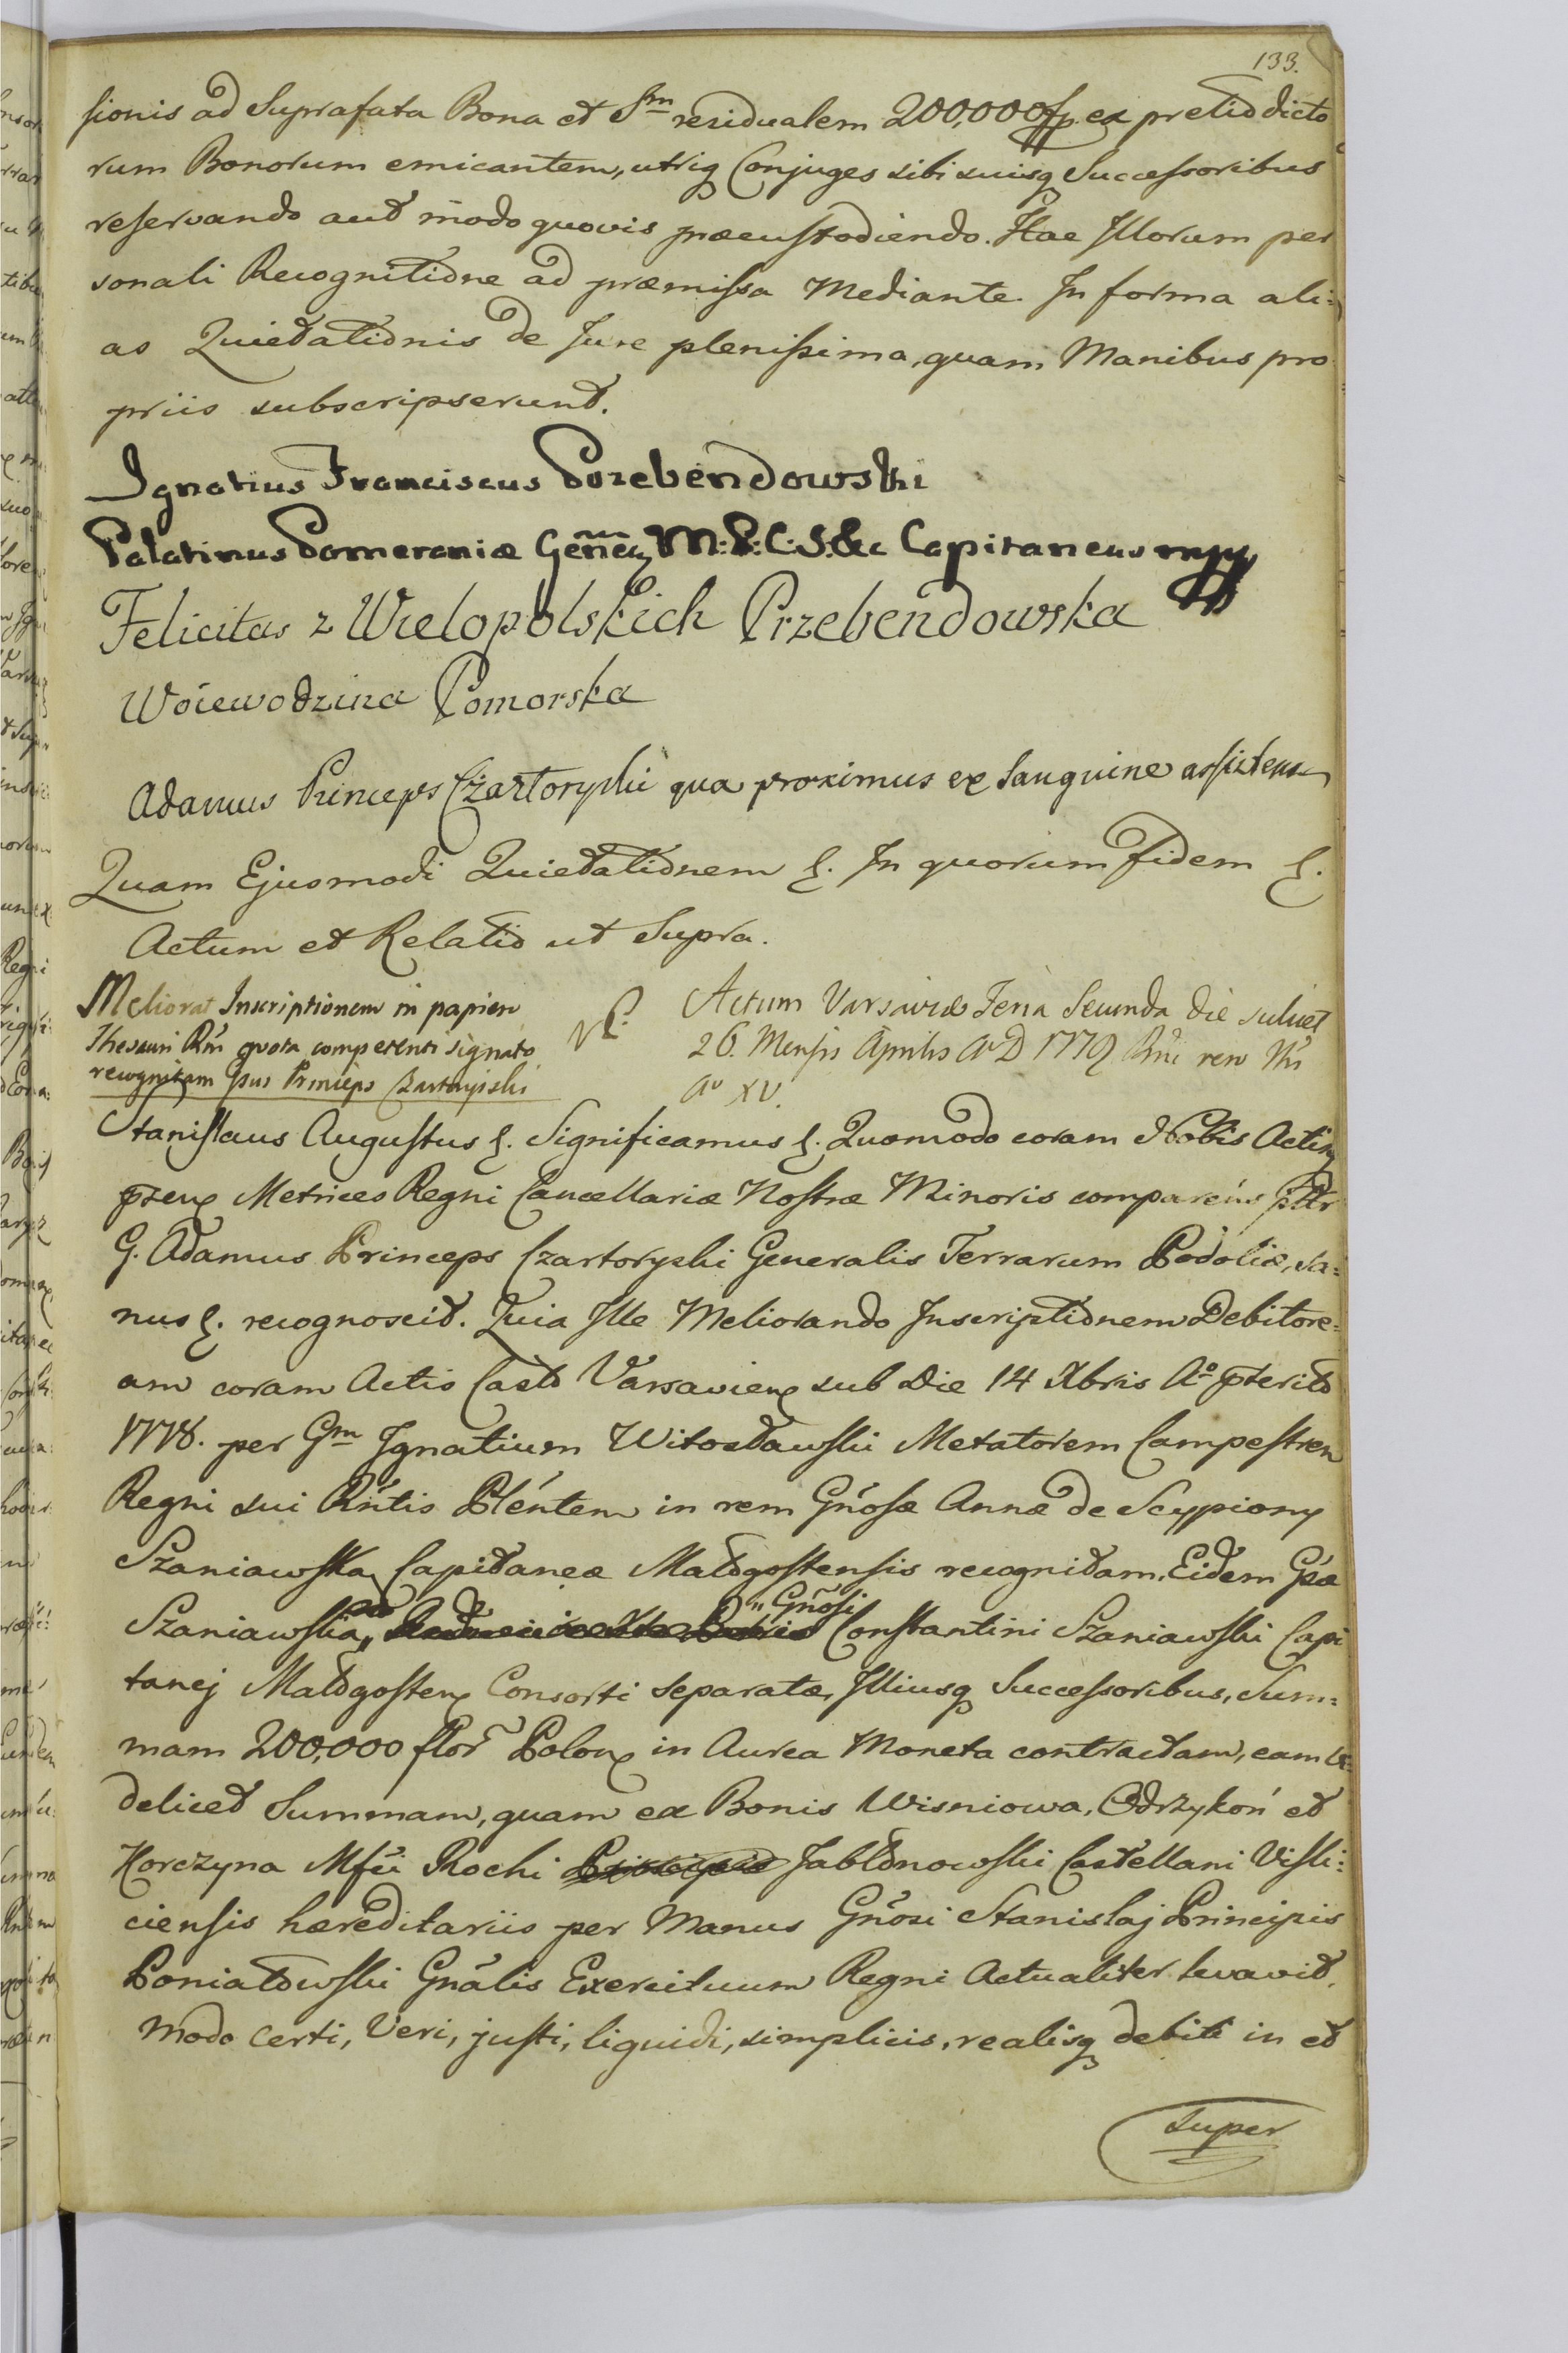 133.
sionis ad Suprafata Bona et Sm residualem 200,000 fp. ex pretio dicto
rum Bonorum emicantem, utriq Conjuges sibi suisq Successoribus
reservando aut modo quovis præcustodiendo. Hac Illorum per
sonali Recognitione ad præmissa Mediante. In forma ali=
as Quietationis de Jure plenissima, quam Manibus pro
priis subscripserunt.
Ignatius Franciscus Przebendowski
Palatinus Pomeraniæ Gen̄ M: P: C: S: &c Capitaneus mpp
Felicitas z Wielopolskich Przebendowska
Woiewodzina Pomorska
Adamus Princeps Czartoryski qua proximus ex Sanguine assistens
Quam Ejusmodi Quietationem &. In quorum fidem &.
Actum et Relatio ut Supra.
Meliorat Inscriptionem in papiro
Thesauri Rni quota competenti signato
recognitam Gsus Princeps Czartoryiski
Actum Varsaviæ Feria Secunda die scilicet
26. Mensis Aprilis A D 1779 Rni vero Nri
Ao XV.
Stanislaus Augustus &. Significamus &. Quomodo coram Nobis Actisq
pzens Metrices Regni Cancellariæ Nostræ Minoris comparens pltr
G. Adamus Princeps Czartoryski Generalis Terrarum Podoliæ, sa=
nus &. recognoscit. Quia Ille Meliorando Inscriptionem Debitore=
am coram Actis Castr Varsaviens sub Die 14 Xbris Ao pterito
1778. per Gm Ignatium Witosławski Metatorem Campestrem
Regni sui Rńtis Pléntem in rem Gńosæ Annæ de Scypiony
Szaniawska Capitaneæ Małogostensis recognitam, Eidem Gsæ
Szaniawska, Gñosi Constantini Szaniawski Capi
tanej Małogostens Consorti separatæ, Illiusq Successoribus, Sum=
mam 200,000 flor Polon in Aurea Moneta contractam, eam vi=
delicet Summam, quam ex Bonis Wisniowa, Odrzykoń et
Korczyna Mfci Rochi Jabłonowski Castellani Visli=
ciensis hæreditariis per Manus Gñosi Stanislaj Principis
Poniatowski Gnãlis Exercituum Regni Actualiter levavit,
modo certi, Veri, justi, liquidi, simplicis, realisq debiti in et
super